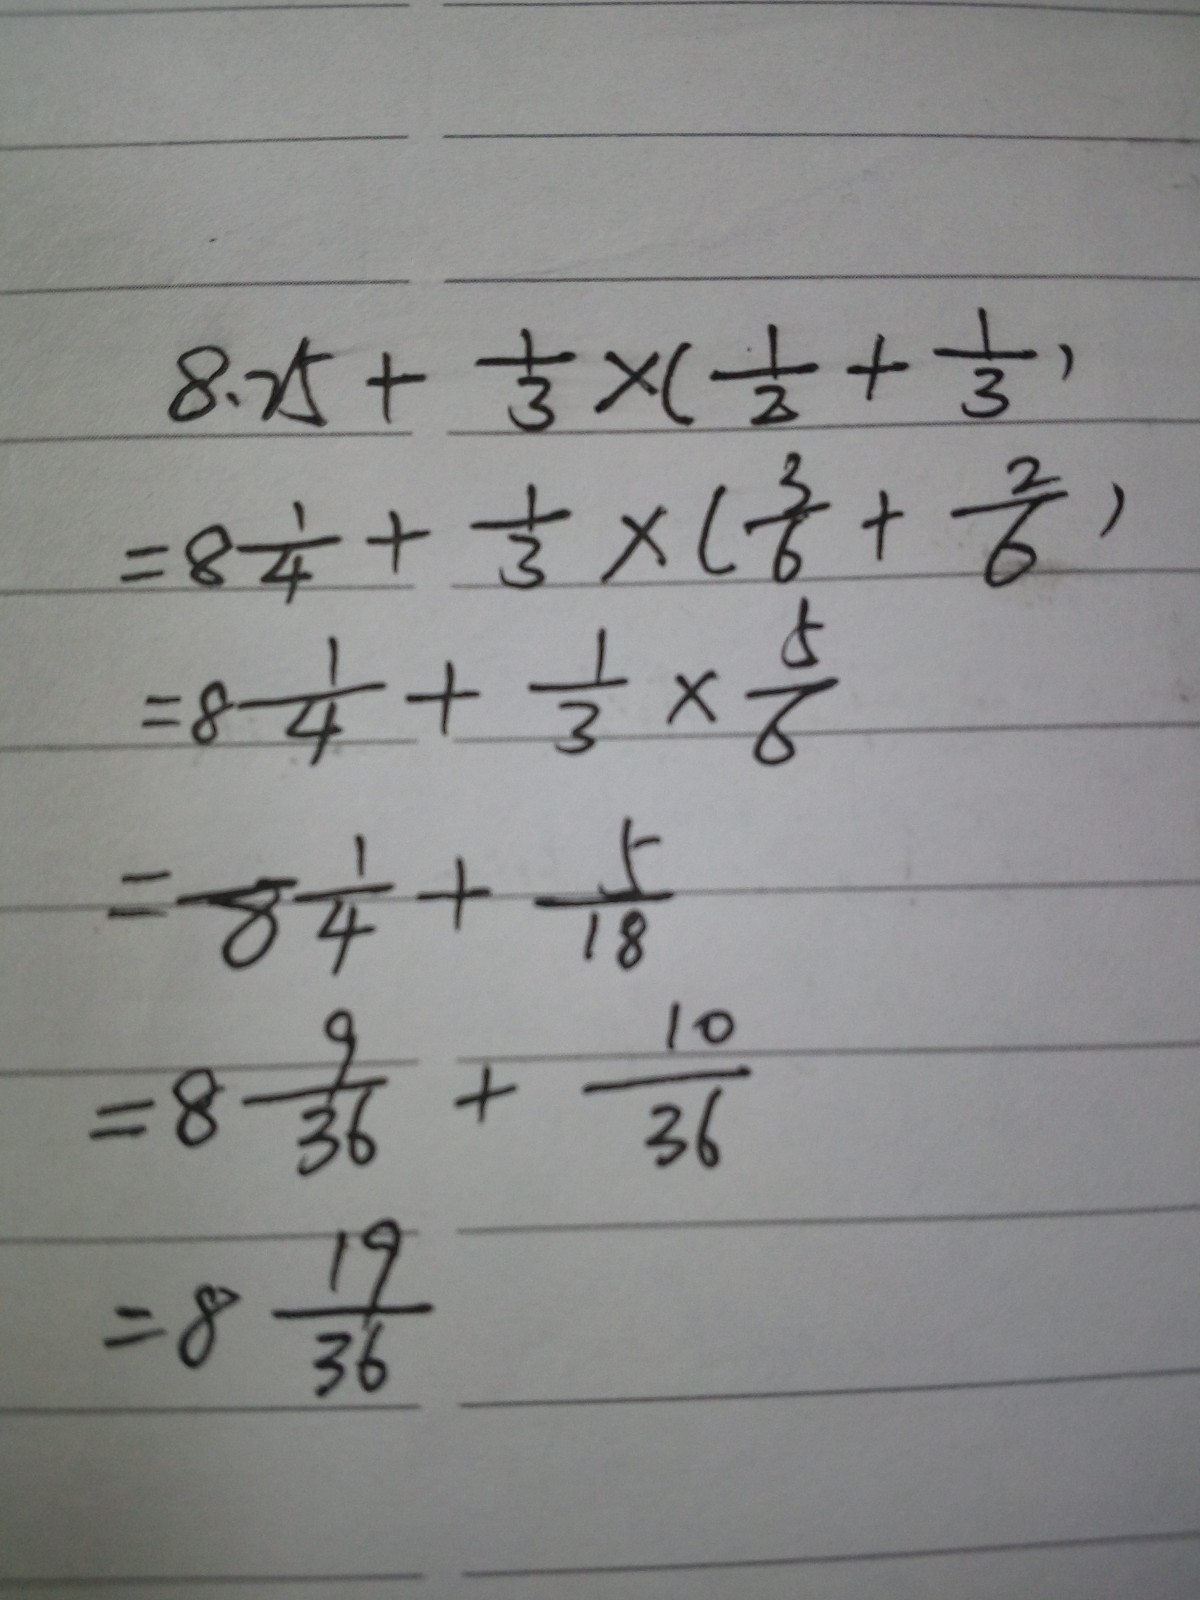 8.25 + 1/3 × ( 1/2 + 1/3 )
= 8 1/4 + 1/3 × ( 3/6 + 2/6 )
= 8 1/4 + 1/3 × 5/6
= 8 1/4 + 5/18
= 8 9/36 + 10/36
= 8 19/36